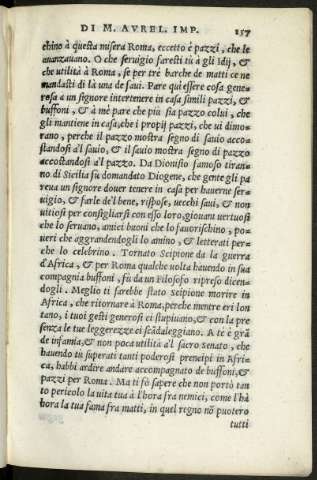 DI M. AVREL. IMP. 157
chino à questa misera Roma, eccetto è pazzi, che le
auanzauano. O che seruigio faresti tu à gli Idij, &
che utilità à Roma, se per tre barche de matti ce ne
mandasti di là una de saui. Pare qui essere cosa gene=
rosa a un signore intertenere in casa simili pazzi, &
buffoni, & à mè pare che più sia pazzo colui, che
gli mantiene in casa, che i propij pazzi, che ui dimo=
rano, perche il pazzo mostra segno di sauio acco=
standosi a'l sauio, & il sauio mostra segno di pazzo
accostandosi a'l pazzo. Da Dionisio famoso tiran=
no di Sicilia fu domandato Diogene, che gente gli pa
reua un signore douer tenere in casa per hauerne ser=
uigio, & farle de'l bene, rispose, uecchi saui, & non
uitiosi per consigliarsi con esso loro, giouani uertuosi
che lo seruano, amici buoni che lo fauorischino, po=
ueri che aggrandendogli lo amino, & letterati per=
che lo celebrino. Tornato Scipione da la guerra
d'Africa, & per Roma qualche uolta hauendo in sua
compagnia buffoni, fù da un Filosofo ripreso dicen=
dogli. Meglio ti sarebbe stato Scipione morire in
Africa, che ritornare à Roma, perche mentre eri lon
tano, i tuoi gesti generosi ci stupiuano, & con la pre
senza le tue leggerezze ci scãdaleggiano. A te è grã
de infamia, & non poca utilità a'l sacro senato, che
hauendo tu superati tanti poderosi prencipi in Afri=
ca, habbi ardire andare accompagnato de buffoni, &
pazzi per Roma. Ma ti fò sapere che non portò tan
to pericolo la uita tua à l'hora fra nemici, come l'hà
hora la tua fama fra matti, in quel regno nõ puotero
tutti